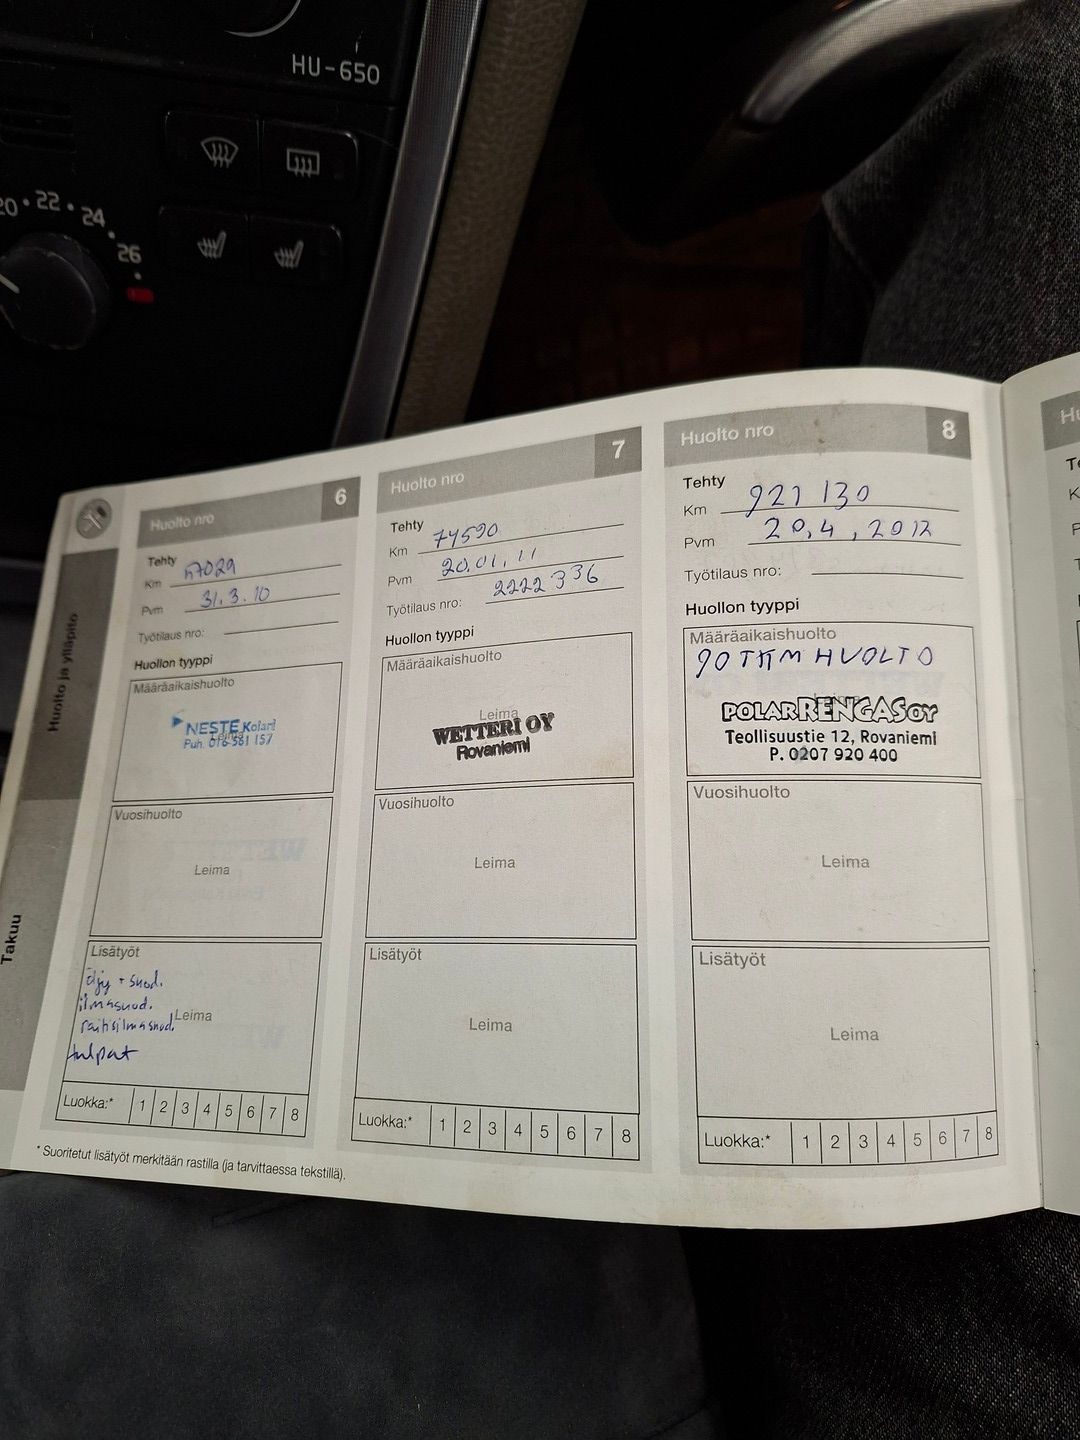 HU-650
20 · 22 · 24
26
Huolto ja ylläpito
Takuu
Huolto nro 6
Tehty
Km
Pvm 31.3.10
Työtilaus nro:
Huollon tyyppi
Määräaikaishuolto
NESTE Kolari
Puh. 016-561 157
Vuosihuolto
Leima
Lisätyöt
öljy + suod.
ilmasuod.
raitisilmasuod.
Leima
tulpat
Luokka:* 1 2 3 4 5 6 7 8
* Suoritetut lisätyöt merkitään rastilla (ja tarvittaessa tekstillä).
Huolto nro 7
Tehty
Km 74590
Pvm 20.01.11
Työtilaus nro: 2222336
Huollon tyyppi
Määräaikaishuolto
Leima
WETTERI OY
Rovaniemi
Vuosihuolto
Leima
Lisätyöt
Leima
Luokka:* 1 2 3 4 5 6 7 8
Huolto nro 8
Tehty
Km 921 130
Pvm 20,4,2012
Työtilaus nro:
Huollon tyyppi
Määräaikaishuolto
90 TKM HUOLTO
POLARRENGAS OY
Teollisuustie 12, Rovaniemi
P. 0207 920 400
Vuosihuolto
Leima
Lisätyöt
Leima
Luokka:* 1 2 3 4 5 6 7 8